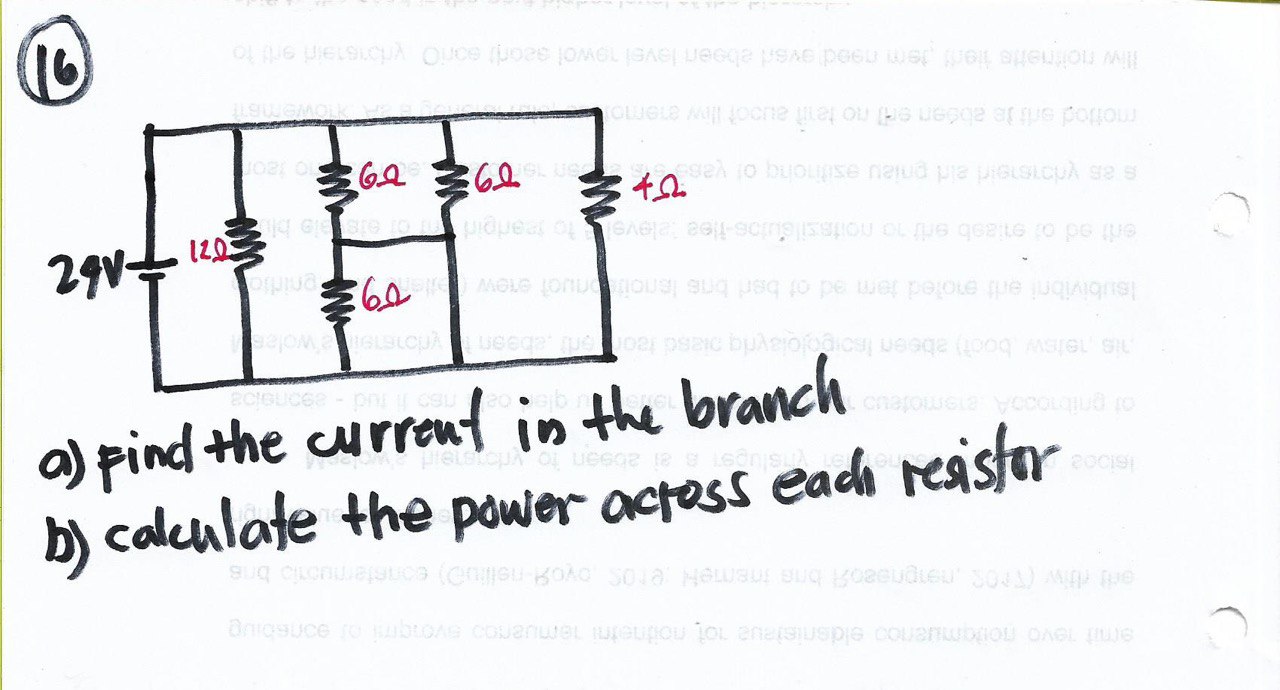 16
6Ω 6Ω 4Ω
12Ω
24V
6Ω
a) Find the current in the branch
b) calculate the power across each resistor